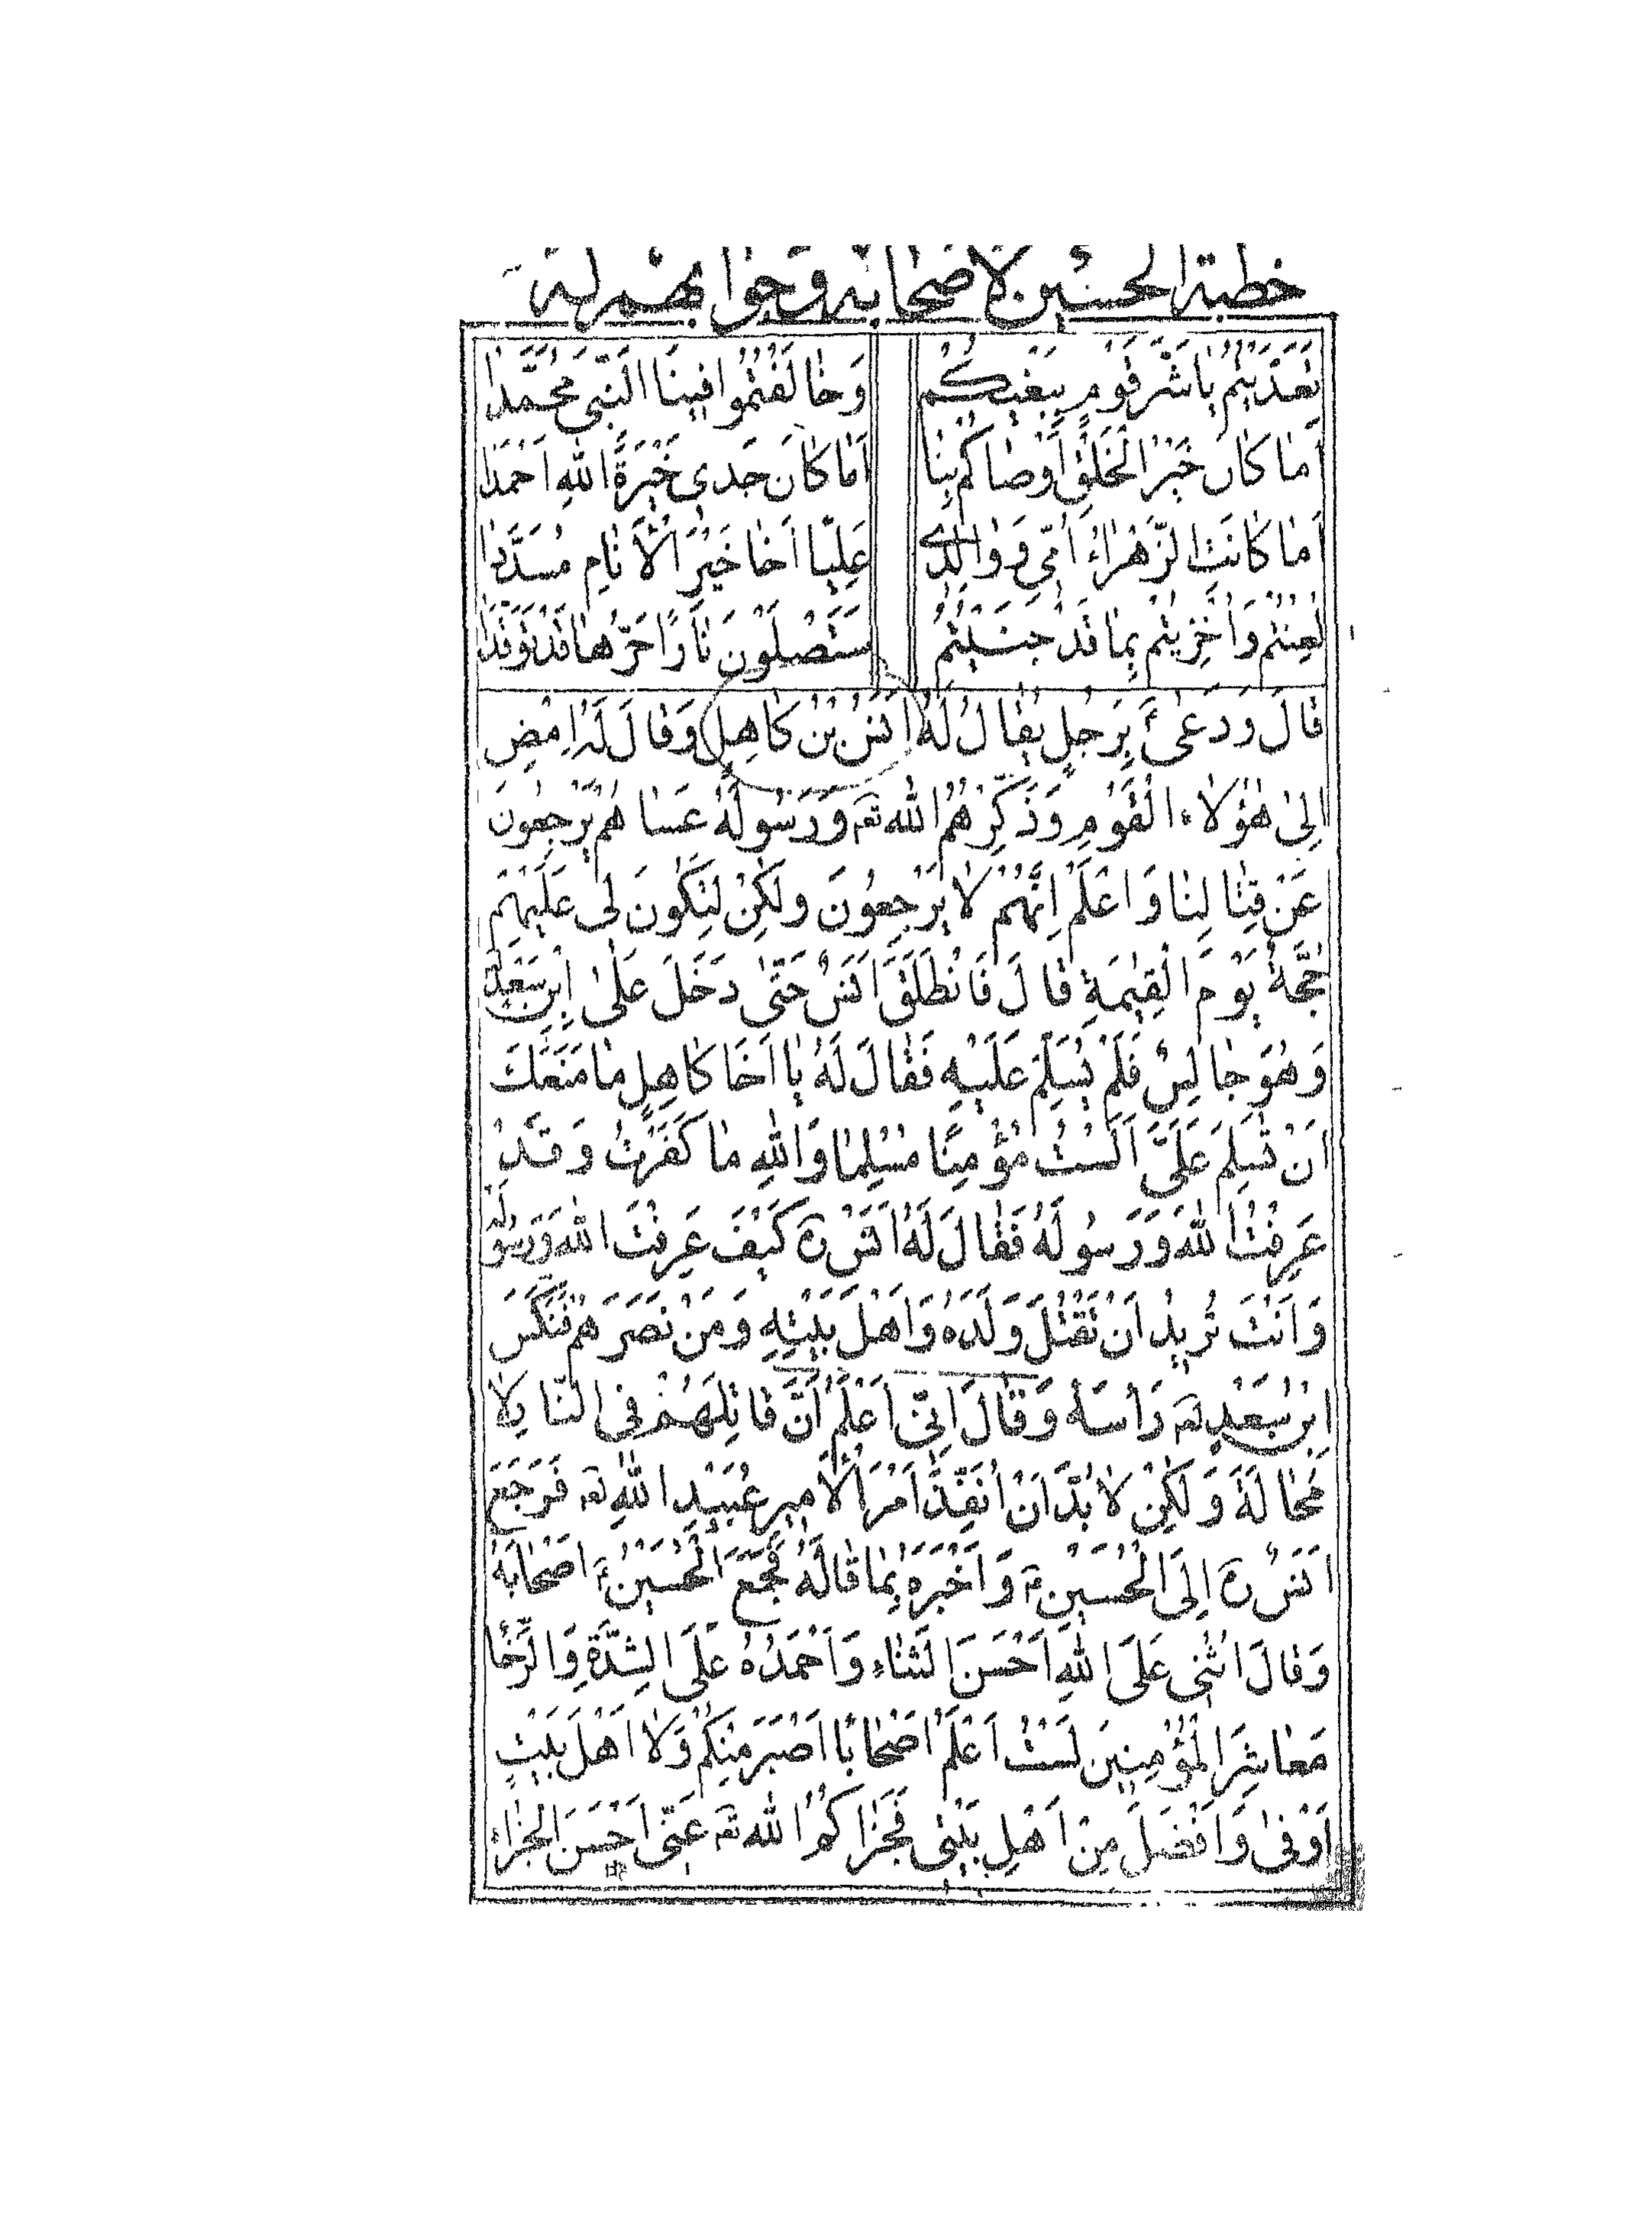 خطبة الحسين لاصحابه وجوابهم له
تَعَدَّيْتُمْ يٰا شَرَّ قَوْمٍ بِبَغْيِكُمْ وَخٰالَفْتُمُوا فِينَا النَّبِىَّ مُحَمَّدًا
اَمٰا كٰانَ خَيْرُ الْخَلْقِ اَوْصٰاكُمْ بِنٰا اَمٰا كٰانَ جَدِى خَيْرَةُ اللهِ اَحْمَدٰا
اَمٰا كٰانَتِ الزَّهْرٰاءُ اُمِّى وَ وٰالِدِى عَلِيًّا اَخٰا خَيْرِ الْاَنٰامِ مُسَدَّدًا
لُعِنْتُمْ وَاُخْزِيتُمْ بِمٰا قَدْ جَنَيْتُمُ سَتَصْلَوْنَ نٰارًا حَرُّهٰا قَدْ تَوَقَّدٰا
قٰالَ وَ دَعٰى ءَ بِرَجُلٍ يُقٰالُ لَهُ اَنَسُ بْنُ كٰاهِلٍ وَقٰالَ لَهُ اِمْضِ
اِلىٰ هٰؤُلٰاءِ الْقَوْمِ وَذَكِّرْهُمُ الله تع وَ رَسُولَهُ عَسٰاهُمْ يَرْجِعُونَ
عَنْ قِتٰالِنٰا وَاعْلَمْ اِنَّهُمْ لٰا يَرْجِعُونَ وَلٰكِنْ لِتَكُونَ لِى عَلَيْهِمْ
حُجَّةٌ يَوْمَ الْقِيٰمَةِ قٰالَ فَانْطَلَقَ اَنَسٌ حَتّىٰ دَخَلَ عَلىٰ ابْنِ سَعْدٍ
وَهُوَ جٰالِسٌ فَلَمْ يُسَلِّمْ عَلَيْهِ فَقٰالَ لَهُ يٰا اَخٰا كٰاهِلٍ مٰا مَنَعَكَ
اَنْ تُسَلِّمَ عَلَىَّ اَلَسْتُ مُؤْمِنًا مُسْلِمًا وَاللهِ مٰا كَفَرْتُ وَقَدْ
عَرِفْتُ اللهَ وَ رَسُولَهُ فَقٰالَ لَهُ اَنَسٌ ره كَيْفَ عَرِفْتَ اللهَ وَرَسُولَهُ
وَاَنْتَ تُرِيدُ اَنْ تَقْتُلَ وَلَدَهُ وَاَهْلَ بَيْتِهِ وَمَنْ نَصَرَهُمْ فَنَكَسَ
ابْنُ سَعْدٍ رَأْسَهُ وَقٰالَ اِنِّى اَعْلَمُ اَنَّ قٰاتِلَهُمْ فِى النّٰارِ لٰا
مَحٰالَةَ وَلٰكِنْ لٰا بُدَّ اَنْ اُنَفِّذَ اَمْرَ الْاَمِيرِ عُبَيْدِ اللهِ فَرَجَعَ
اَنَسٌ ره اِلَى الْحُسَيْنِ ع وَاَخْبَرَهُ بِمٰا قٰالَهُ فَجَمَعَ الْحُسَيْنُ ع اَصْحٰابَهُ
وَقٰالَ اُثْنِى عَلَى اللهِ اَحْسَنَ الثَنٰاءِ وَاَحْمَدُهُ عَلَى الشِدَّةِ وَالرَّخٰا
مَعٰاشِرَ الْمُؤْمِنِينَ لَسْتُ اَعْلَمُ اَصْحٰابًا اَصْبَرَ مِنْكُمْ وَلٰا اَهْلَ بَيْتٍ
اَوْفىٰ وَاَفْضَلَ مِنْ اَهْلِ بَيْتِى فَجَزٰاكُمُ الله تع عَنِّى اَحْسَنَ الْجَزٰاءِ